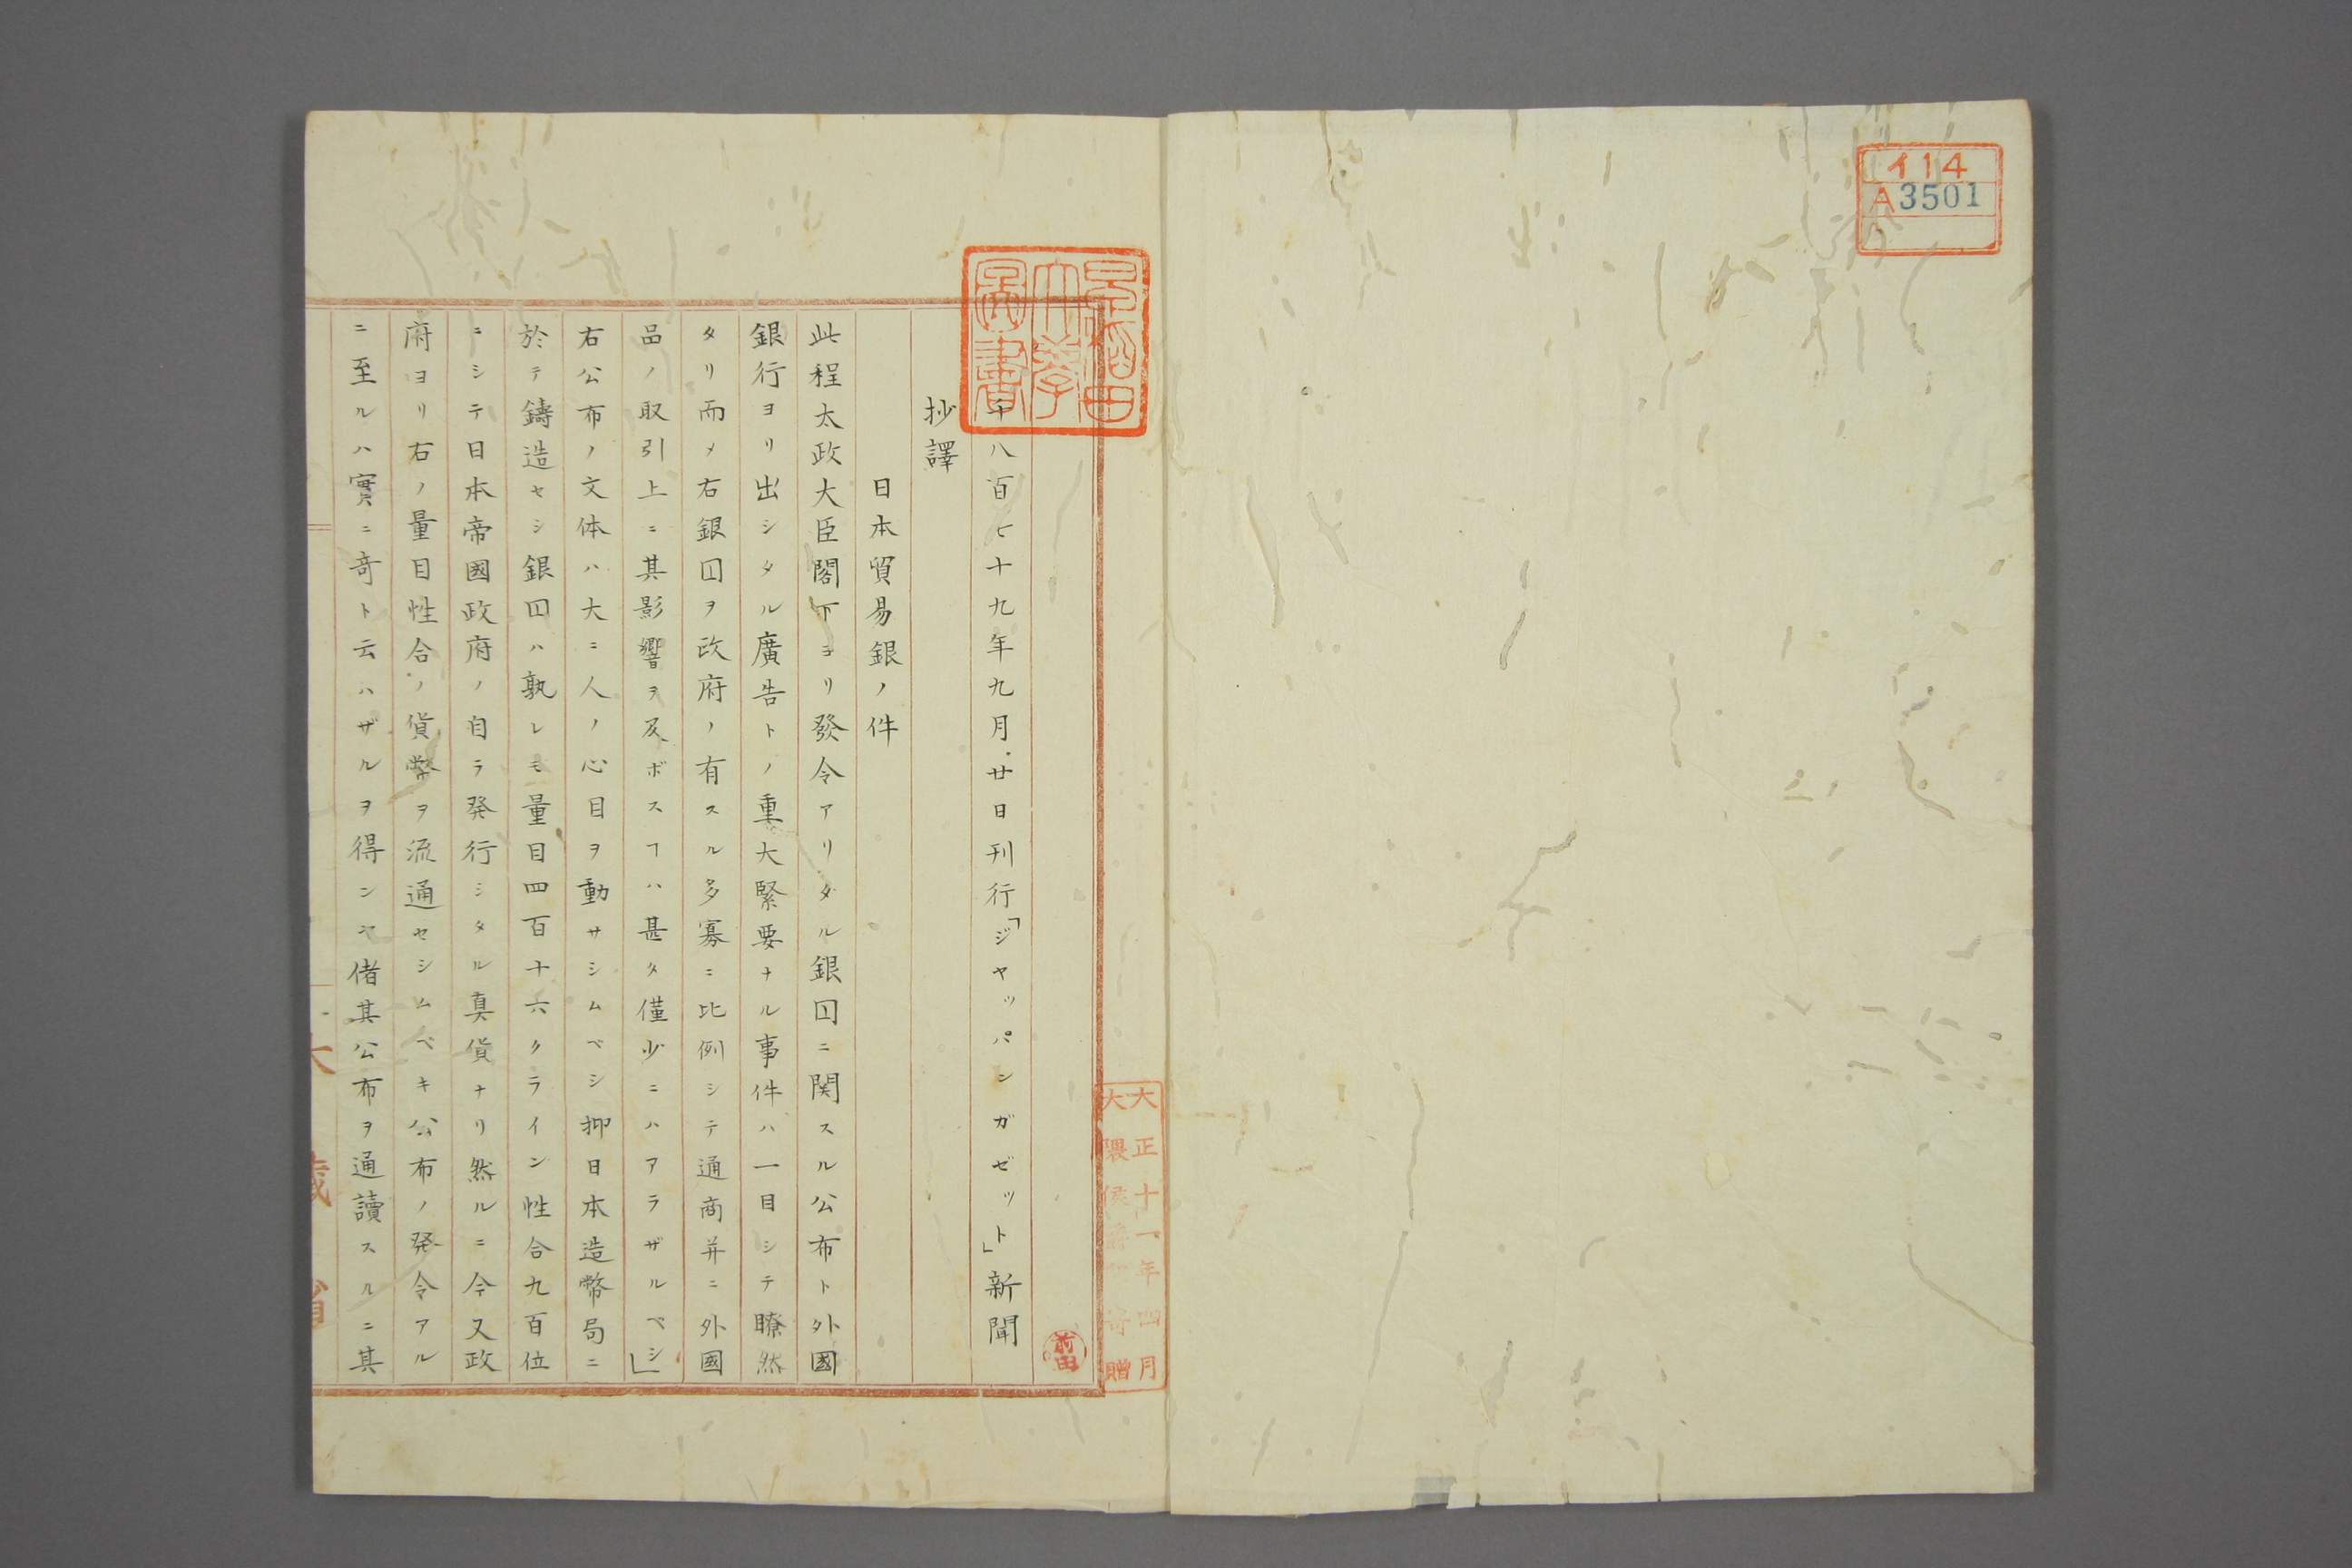 イ14
A3501
早稲田
大學
圖書
大正十一年四月
大隈侯爵家寄贈
前田
千八百七十九年九月廿日刊行「ジャッパンガゼット」新聞
抄譯
日本貿易銀ノ件
此程太政大臣閣下ヨリ發令アリタル銀囗ニ関スル公布ト外國
銀行ヨリ出シタル廣告トノ重大緊要ナル事件ハ一目シテ瞭然
タリ而メ右銀囗ヲ政府ノ有スル多寡ニ比例シテ通商并ニ外國
品ノ取引上ニ其影響ヲ及ボスヿハ甚タ僅少ニハアラザルベシ」
右公布ノ文体ハ大ニ人ノ心目ヲ動サシムベシ抑日本造幣局ニ
於テ鋳造セシ銀囗ハ孰レモ量目四百十六クライン性合九百位
ニシテ日本帝國政府ノ自ラ発行シタル真貨ナリ然ルニ今又政
府ヨリ右ノ量目性合ノ貨幣ヲ流通セシムベキ公布ノ発令アル
ニ至ルハ實ニ奇ト云ハザルヲ得ンヤ偖其公布ヲ通讀スルニ其
大藏省